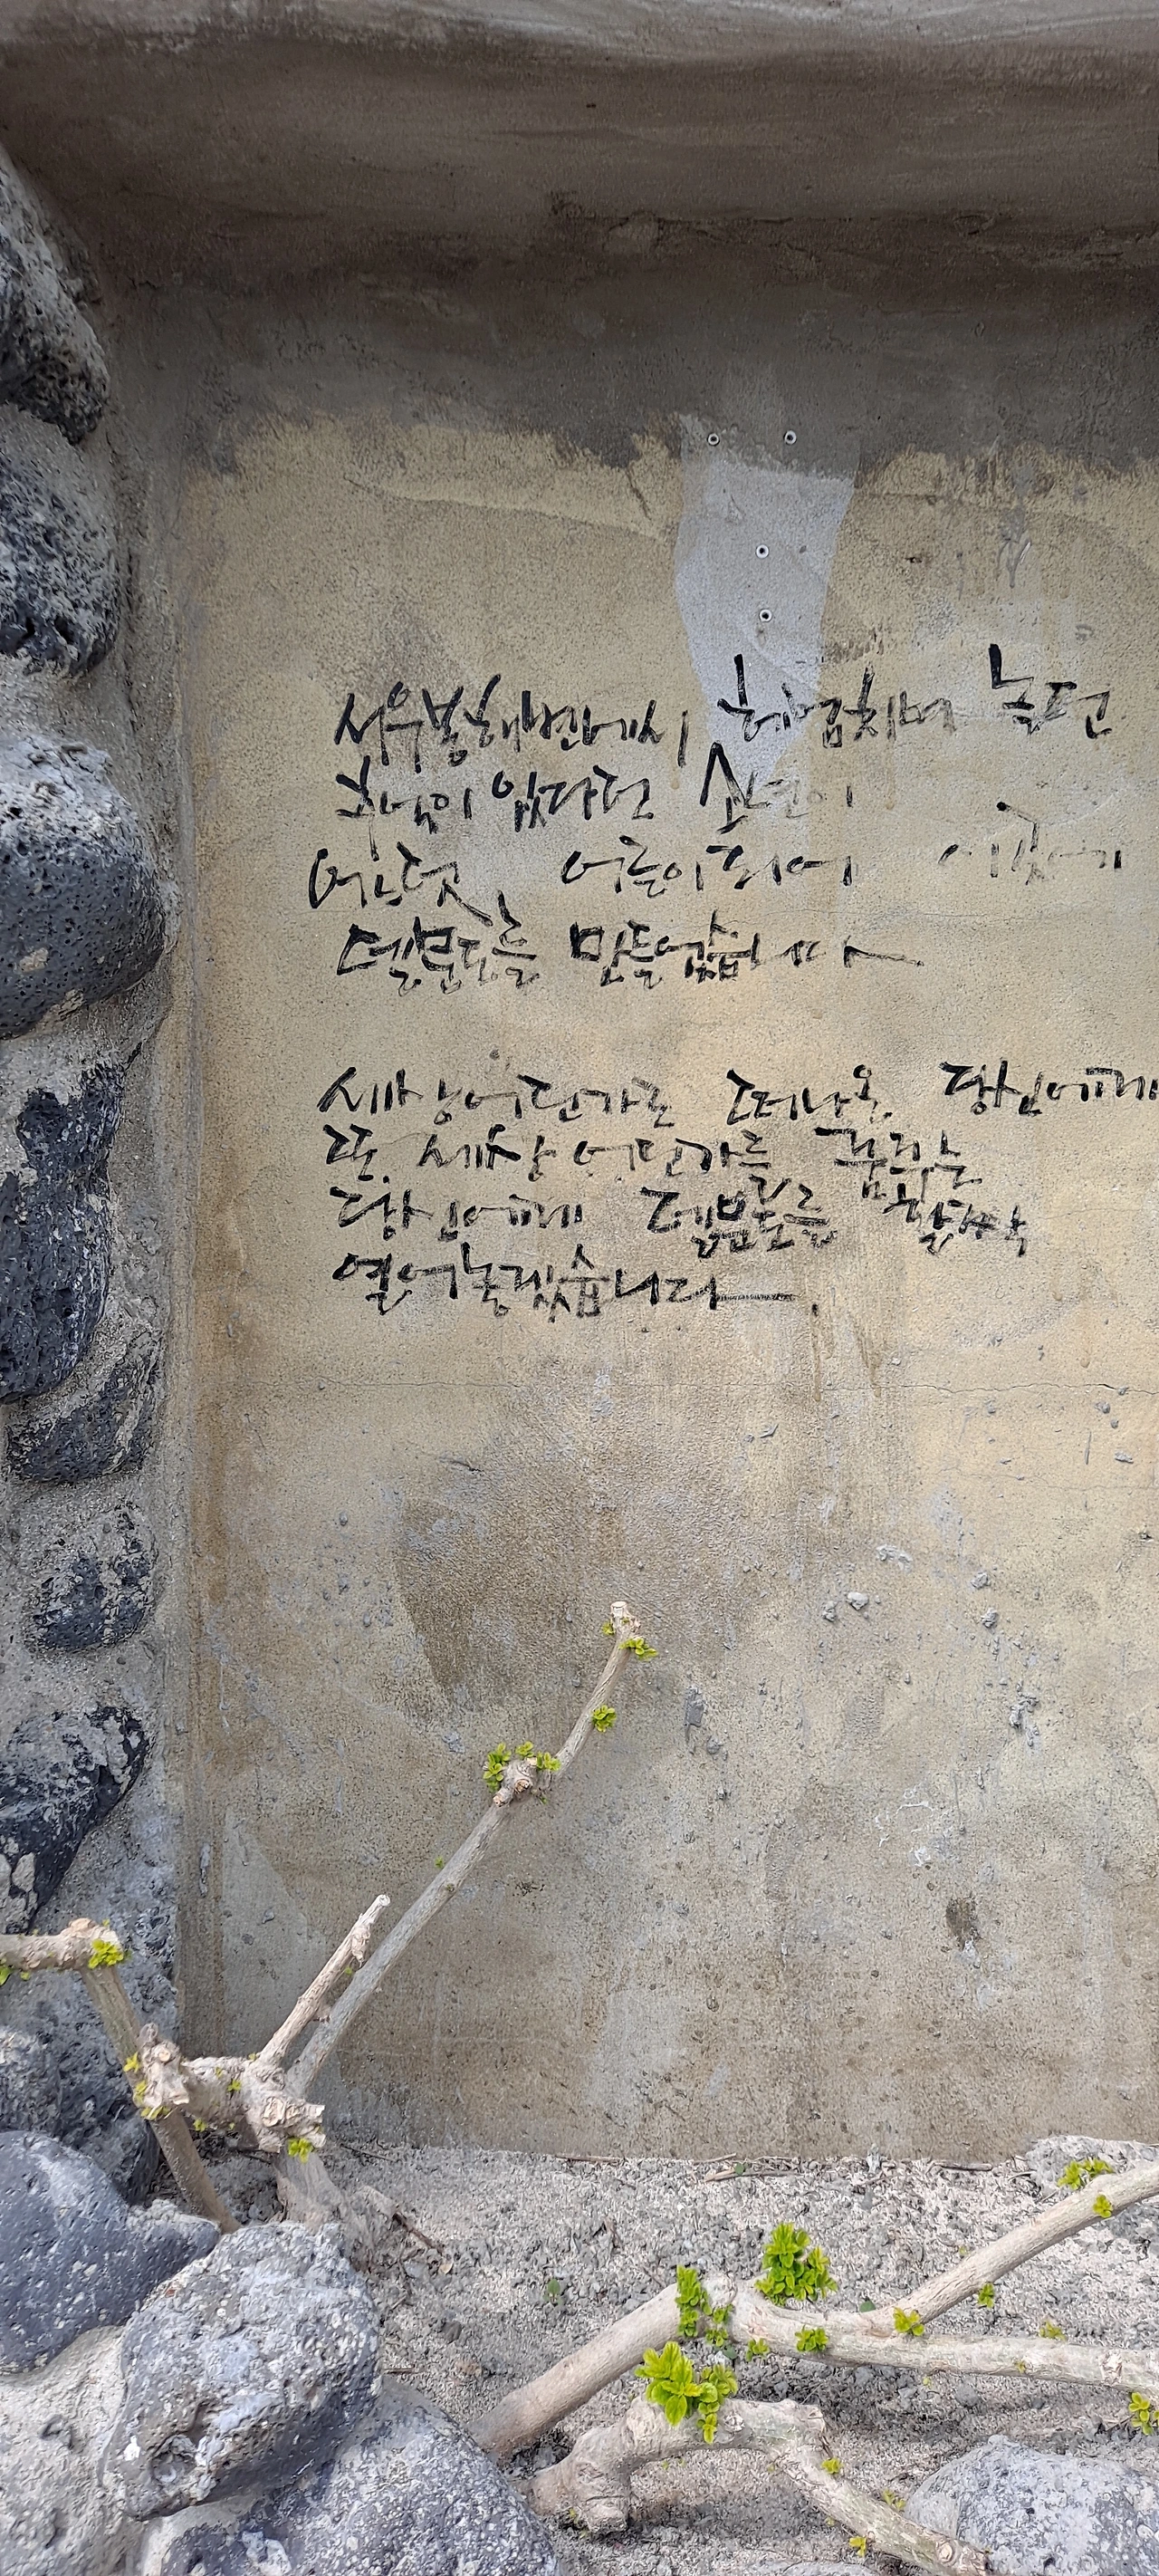 서우봉해변에서 헤엄치며 놀던
추억이 있다던 소년이
어느덧, 어른이 되어 이곳에
델문도를 만들었습니다
세상 어딘가로 떠나온 당신에게
또 세상 어딘가를 꿈꾸는
당신에게 델문도를 활짝
열어놓겠습니다.